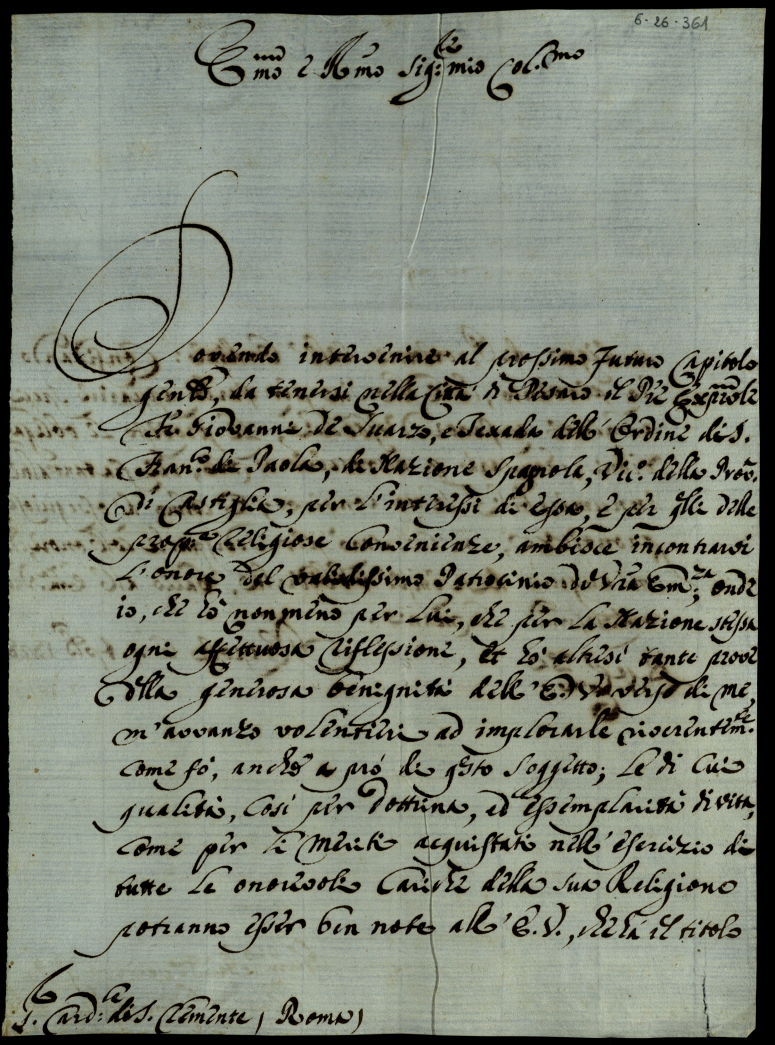 6-26-361
Em̃mo e R̃mo Sig:re mio Col.mo
Dovendo intervenire al prossimo futuro Capitolo
gen̄le, da tenersi nella Città di Pesaro il Pre
Fr. Giovanni de Suarzo, e Texada dell'Ordine di S.
Fran.co de Paola, di Nazione Spagnola, Vic.o della Prov.
di Castiglia, per l'interessi di essa, e per q̃lle delle
prop.e Religiose Convenienze, ambisce incontrarsi
l'onore del validissimo Patrocinio di Vr̃a Em.za; onde
io, che hò non meno per Lui, che per la Nazione stessa
ogni affettuosa riflessione, et hò altresì tante prove
della generosa benignità dell'E. V. verso di me,
m'avvanzo volentieri ad implorarle riverentem.te
come fò, anche a prò di q̃sto soggetto; Le di cui
qualità, così per dottrina, ed essemplarità di vita,
come per li meriti acquistati nell'esercizio di
tutte le onorevoli Cariche della sua Religione
potranno esser ben note all'E. V., che hà il titolo
S. Card:le di S. Clemente, Roma